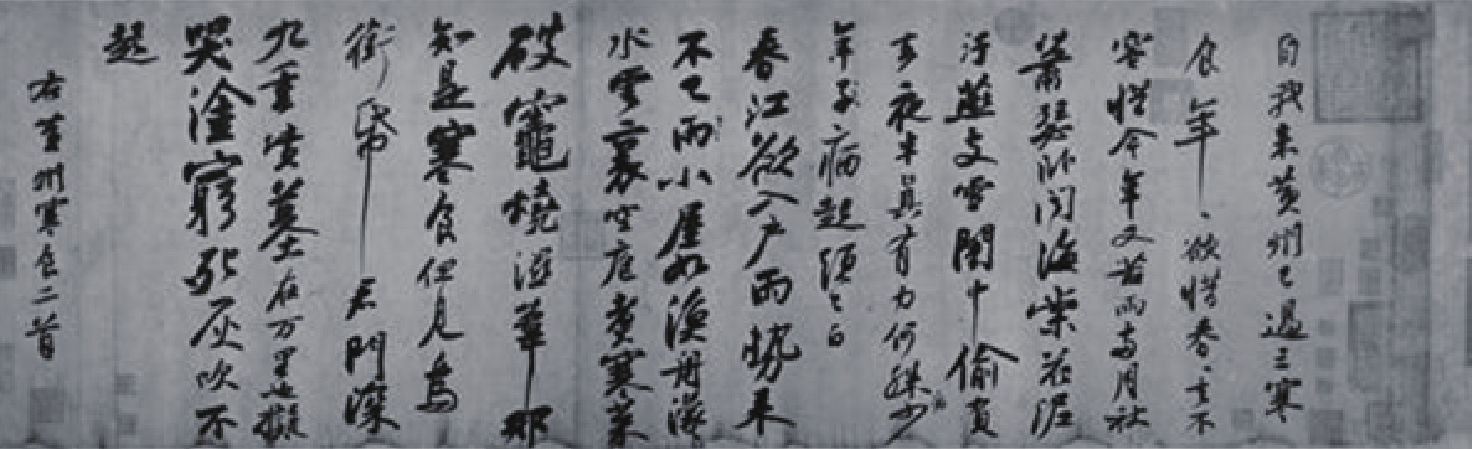 自我来黄州已過三寒
食年年欲惜春春去不
容惜今年又苦雨兩月秋
蕭瑟卧聞海棠花泥
汙燕支雪闇中偷負
去夜半真有力何殊少
年子病起須已白
春江欲入户雨勢来
不已雨小屋如漁舟濛濛
水雲裏空庖煮寒菜
破竈燒濕葦那
知是寒食但見烏
銜帋君門深
九重墳墓在万里也擬
哭塗窮死灰吹不
起
右黄州寒食二首